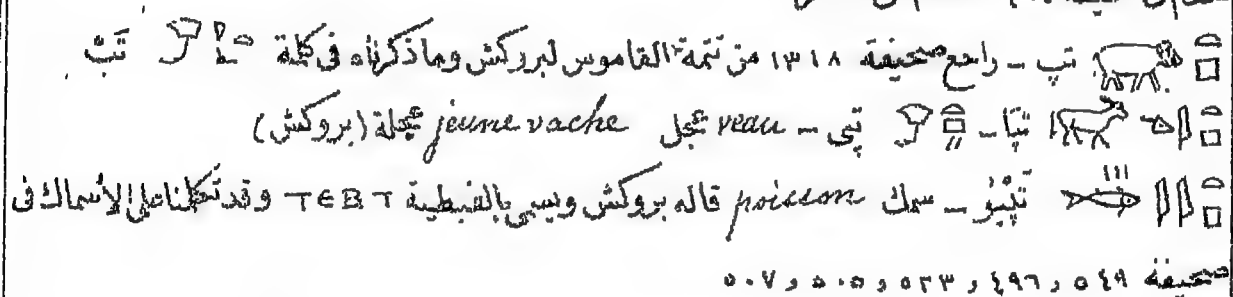 تپ ـ راجع صحيفة ١٣١٨ من تتمة القاموس لبروكش وما ذكرناه فى كلمة تَبْ
تپَا ـ تپى ـ veau عجل jeune vache عجلة (بروكش)
تَپْيُو ـ سمك poisson قاله بروكش ويسمى بالقبطية ⲦⲈⲂⲦ وقد تكلمنا على الأسماك فى
صحيفة ٥٤٩ و ٤٩٦ و ٥٣٣ و ٥٠٥ و ٥٠٧